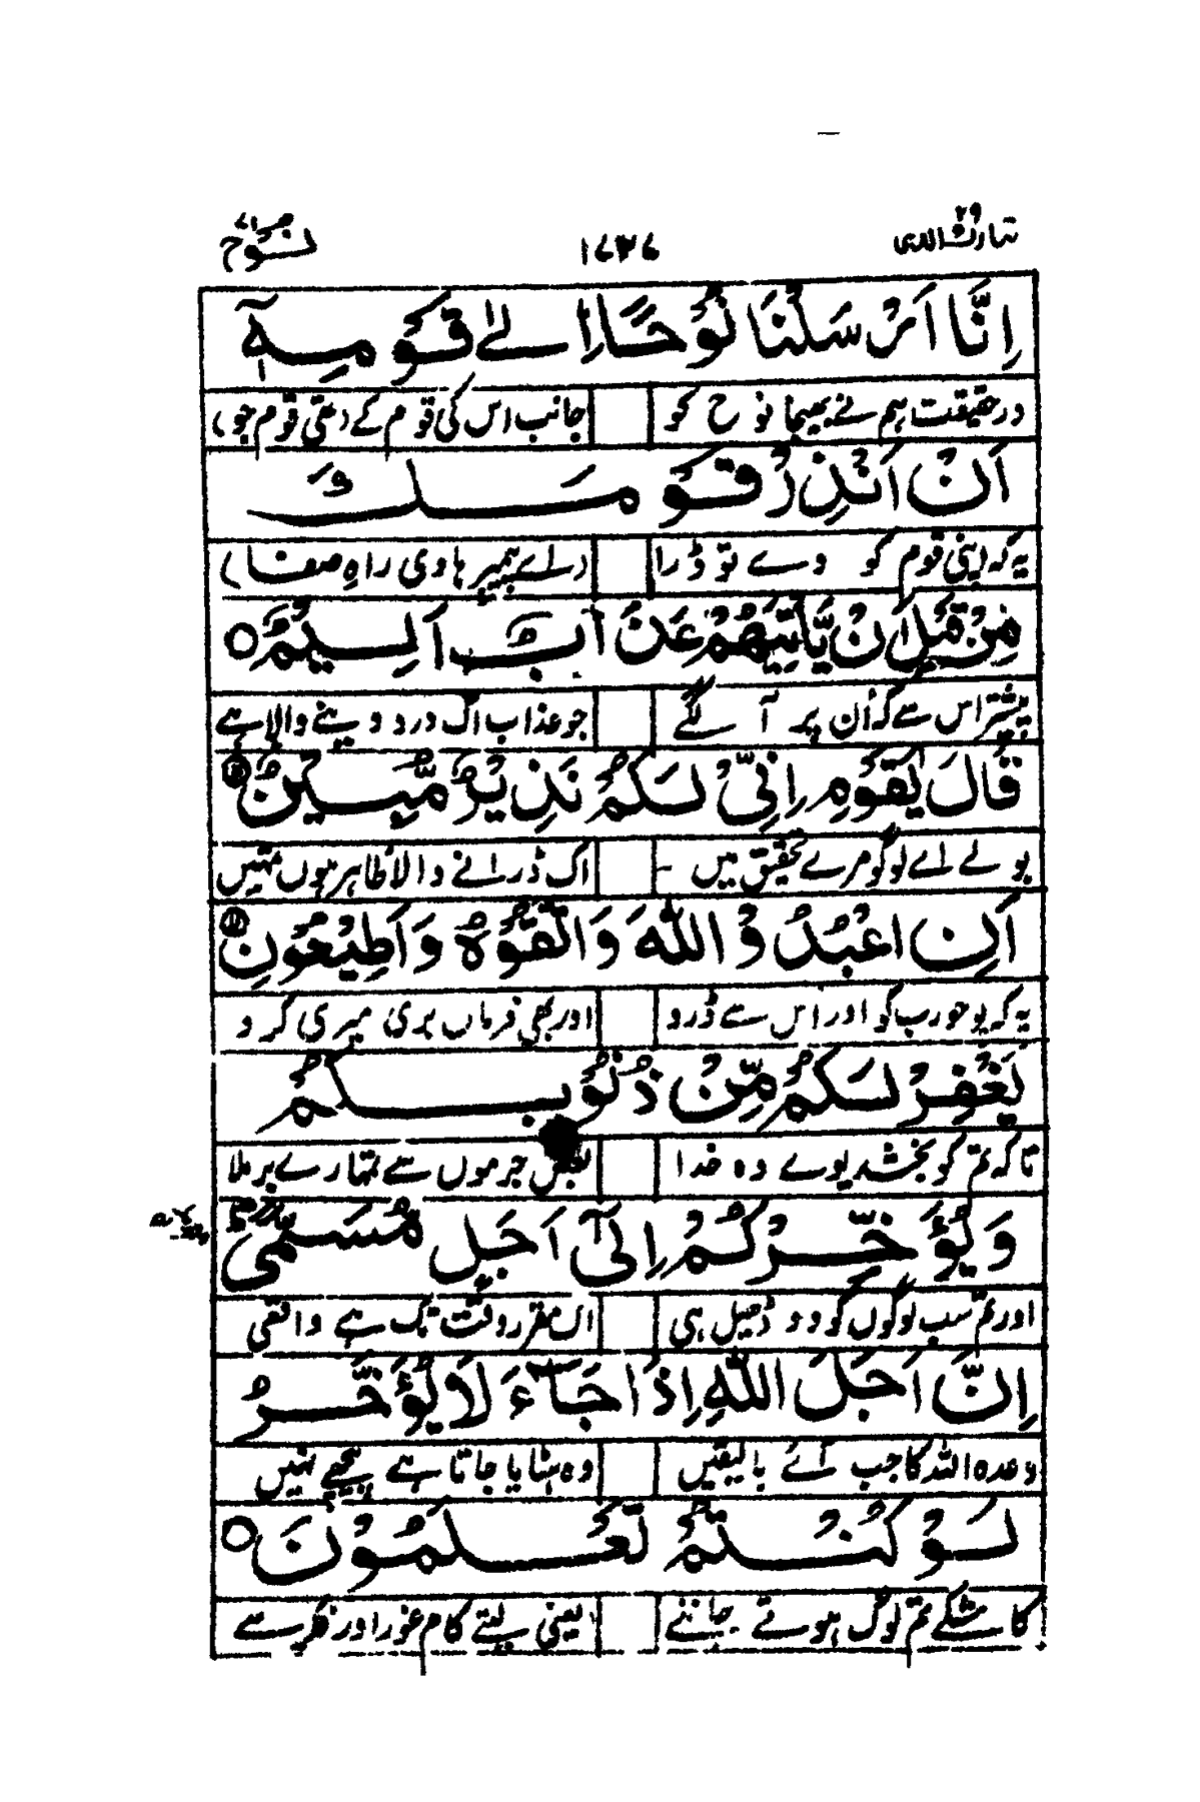 تبارك الذی ٢٩ ١٧٣٧ نوح ٧١
اِنَّا اَرْسَلْنَا نُوْحًا اِلٰے قَوْمِهٖٓ
درحقیقت ہم نے بھیجا نوح کو جانب اس کی قوم کے (تھی قوم جو)
اَنْ اَنْذِرْ قَوْمَكَ
یہ کہ اپنی قوم کو دے تو ڈرا (اے پیمبر ہادی راہِ صفا)
مِنْ قَبْلِ اَنْ يَّاْتِيَهُمْ عَذَابٌ اَلِيْمٌ ○
پیشتر اس سے کہ اُن پر آ لگے جو عذاب اک درد دینے والا ہے
قَالَ يٰقَوْمِ اِنِّىْ لَكُمْ نَذِيْرٌ مُّبِيْنٌ
بولے اے لوگو مرے تحقیق میں - اک ڈرانے والا ظاہر ہوں تمہیں
اَنِ اعْبُدُوا اللّٰهَ وَاتَّقُوْهُ وَاَطِيْعُوْنِ
یہ کہ پوجو رب کو اور اس سے ڈرو اور بھی فرماں بری میری کرو
يَغْفِرْ لَكُمْ مِّنْ ذُنُوْبِكُمْ
تاکہ تم کو بخشدیوے وہ خدا بعض جرموں سے تمہارے برملا
وَيُؤَخِّرْكُمْ اِلٰٓى اَجَلٍ مُّسَمًّى
اور تم سب لوگوں کو دو ڈھیل ہی اس مقرر وقت تک ہے واقعی
اِنَّ اَجَلَ اللّٰهِ اِذَا جَآءَ لَا يُؤَخَّرُ
وعدہ اللہ کا جب آئے بالیقیں وہ ہٹایا جاتا ہے پیچھے نہیں
لَوْ كُنْتُمْ تَعْلَمُوْنَ ○
کاشکے تم لوگ ہوتے جانتے یعنی لیتے کام غور اور فکر سے